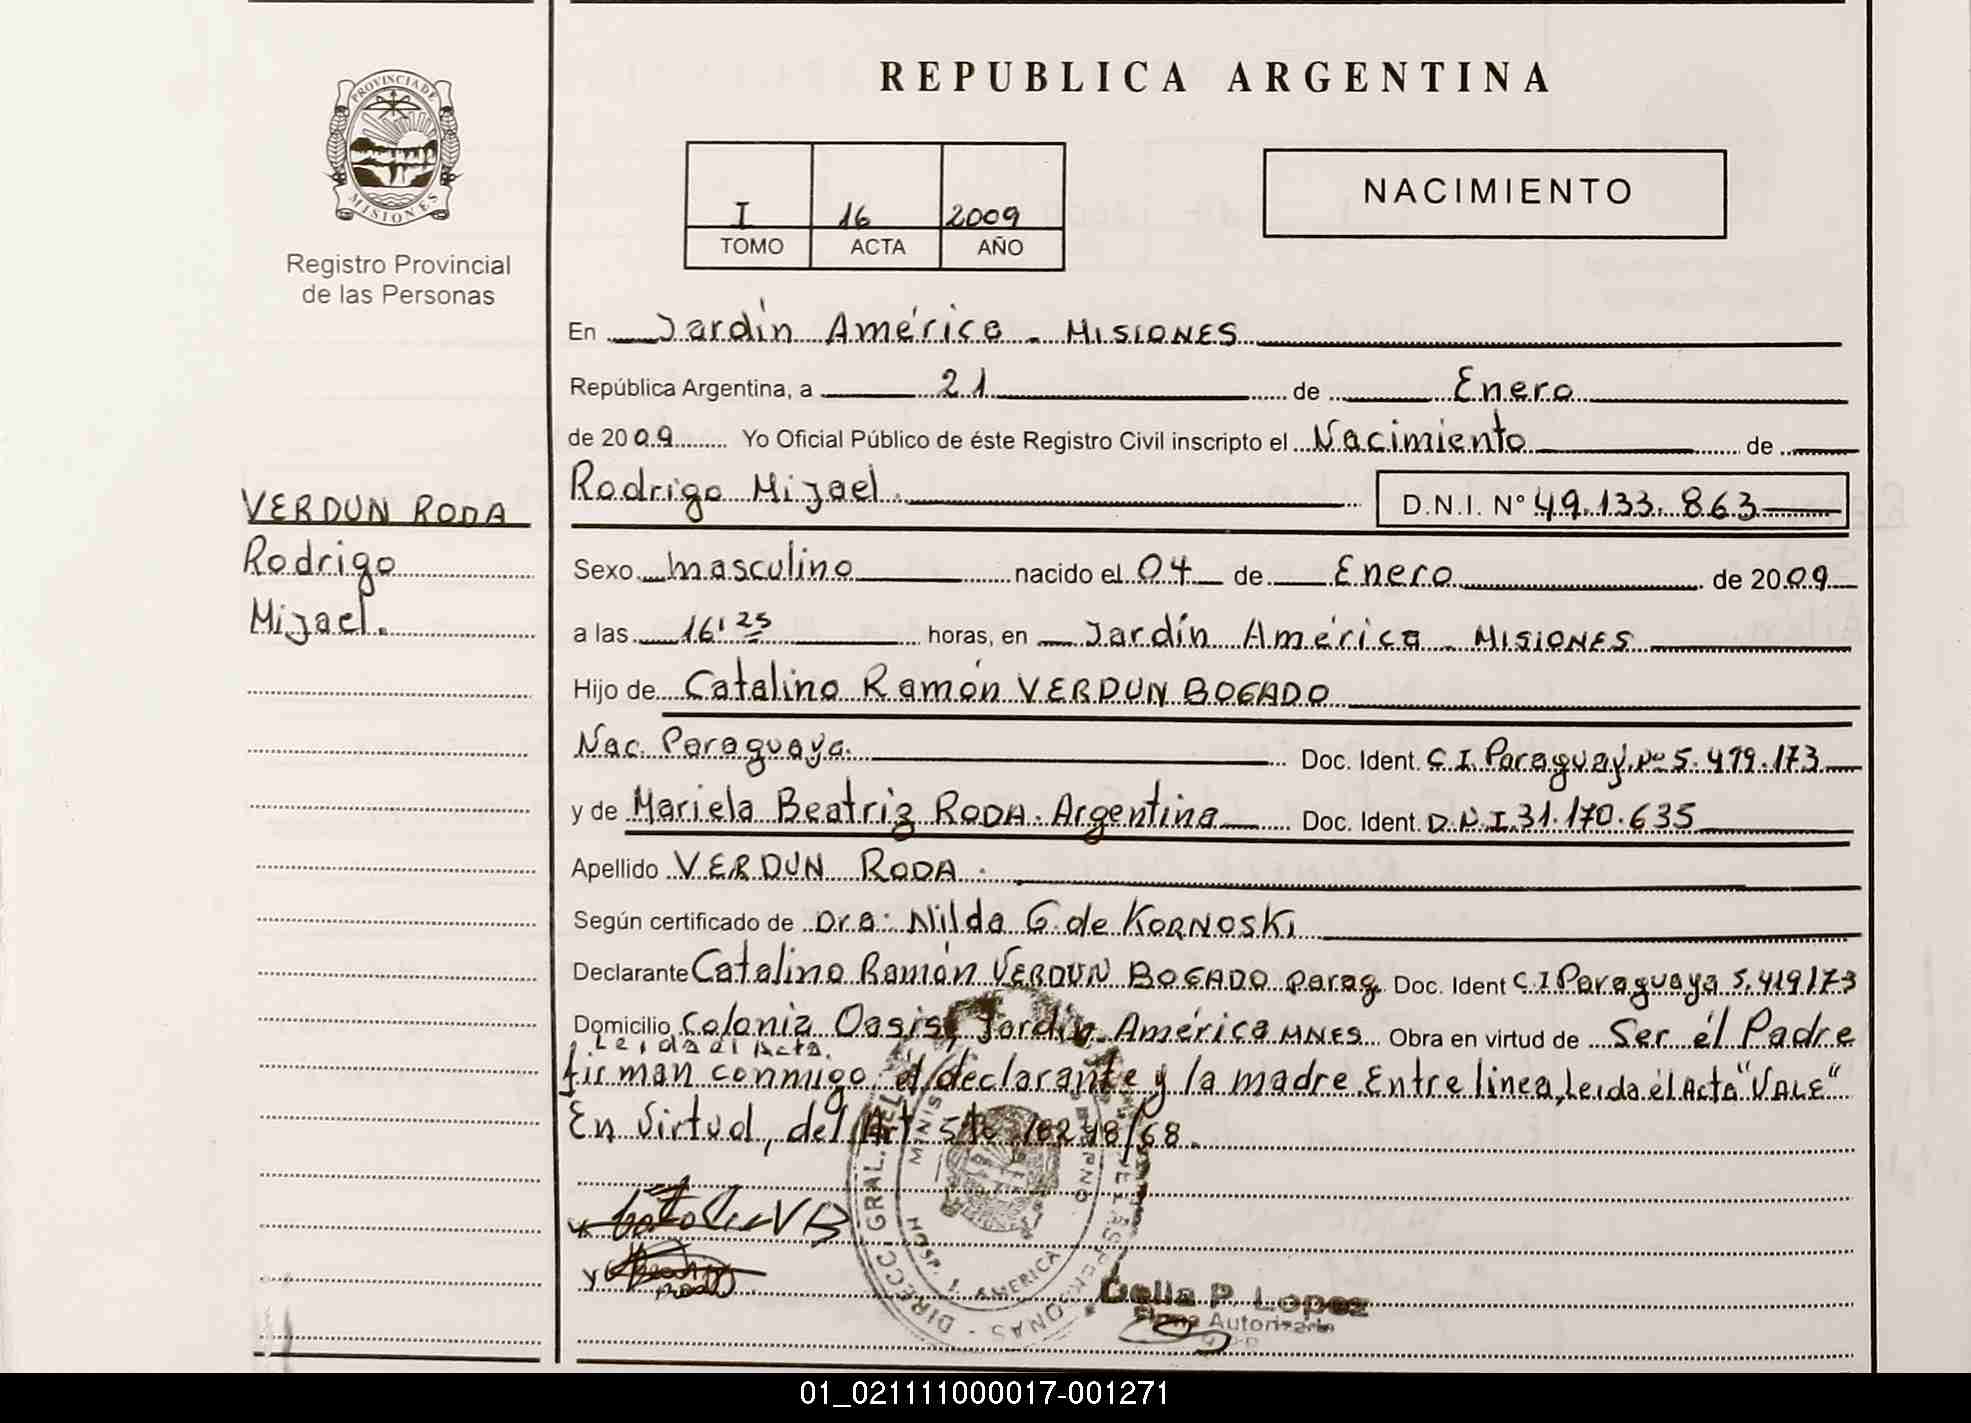 REPUBLICA ARGENTINA
PROVINCIA DE
MISIONES
Registro Provincial
de las Personas
I 16 2009
TOMO ACTA AÑO
NACIMIENTO
En Jardín América - MISIONES
República Argentina, a 21 de Enero
de 2009 Yo Oficial Público de éste Registro Civil inscripto el Nacimiento de
Rodrigo Mijael. D.N.I. N° 49.133.863
VERDUN RODA
Rodrigo
Mijael.
Sexo masculino nacido el 04 de Enero de 2009
a las 16'25 horas, en Jardín América - MISIONES
Hijo de Catalino Ramón VERDUN BOGADO
Nac. Paraguaya. Doc. Ident. C I Paraguay. Nº 5.419.173
y de Mariela Beatriz RODA. Argentina Doc. Ident. D.N.I. 31.170.635
Apellido VERDUN RODA.
Según certificado de Dra: Nilda G. de KORNOSKI
Declarante Catalino Ramón VERDUN BOGADO parag. Doc. Ident C.I Paraguaya 5.419173
Domicilio Colonia Oasis, Jardín América MNES. Obra en virtud de Ser él Padre
Leida el Acta.
firman conmigo el declarante y la madre. Entre linea, Leida él Acta "VALE"
En Virtud, del Art. 5 18248/68.
DIRECC. GRAL. DEL PERSONAS
MINIS
AMERICA
Delia P. Lopez
Firma Autorizada
01_021111000017-001271